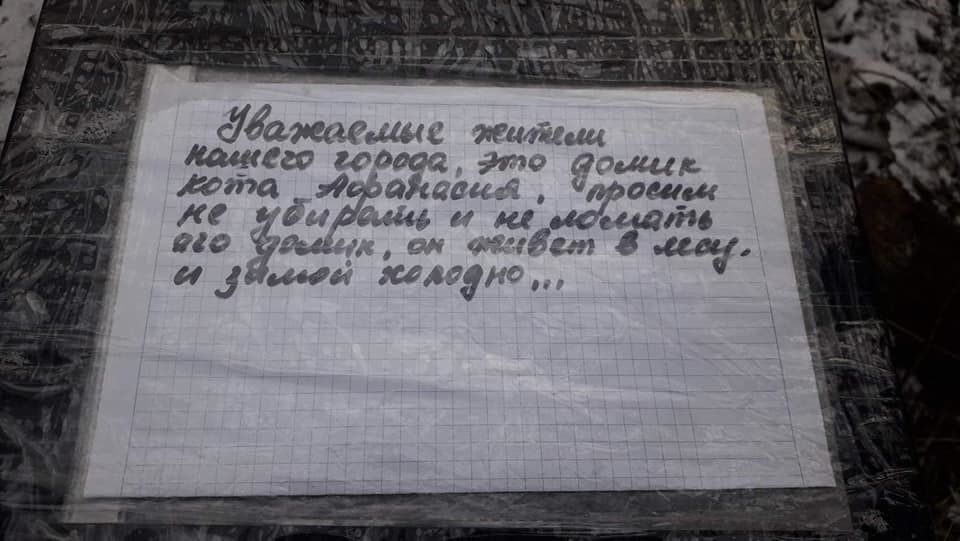 Уважаемые жители
нашего города, это домик
кота Афанасия, просим
не убирать и не ломать
его домик, он живет в лесу.
и зимой холодно...